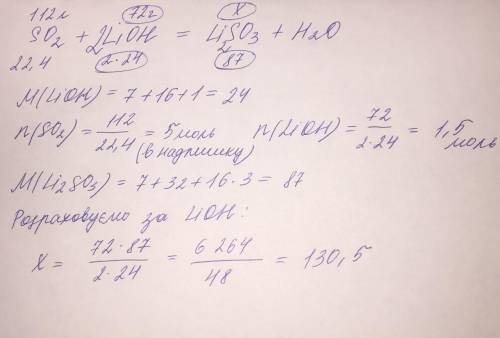 112л 72г X
SO₂ + 2LiOH = Li₂SO₃ + H₂O
22,4 2·24 87
M(LiOH) = 7+16+1 = 24
n(SO₂) = 112/22,4 = 5 моль (в надлишку) n(LiOH) = 72/2·24 = 1,5 моль
M(Li₂SO₃) = 7+32+16·3 = 87
Розраховуємо за LiOH:
X = 72·87/2·24 = 6264/48 = 130,5